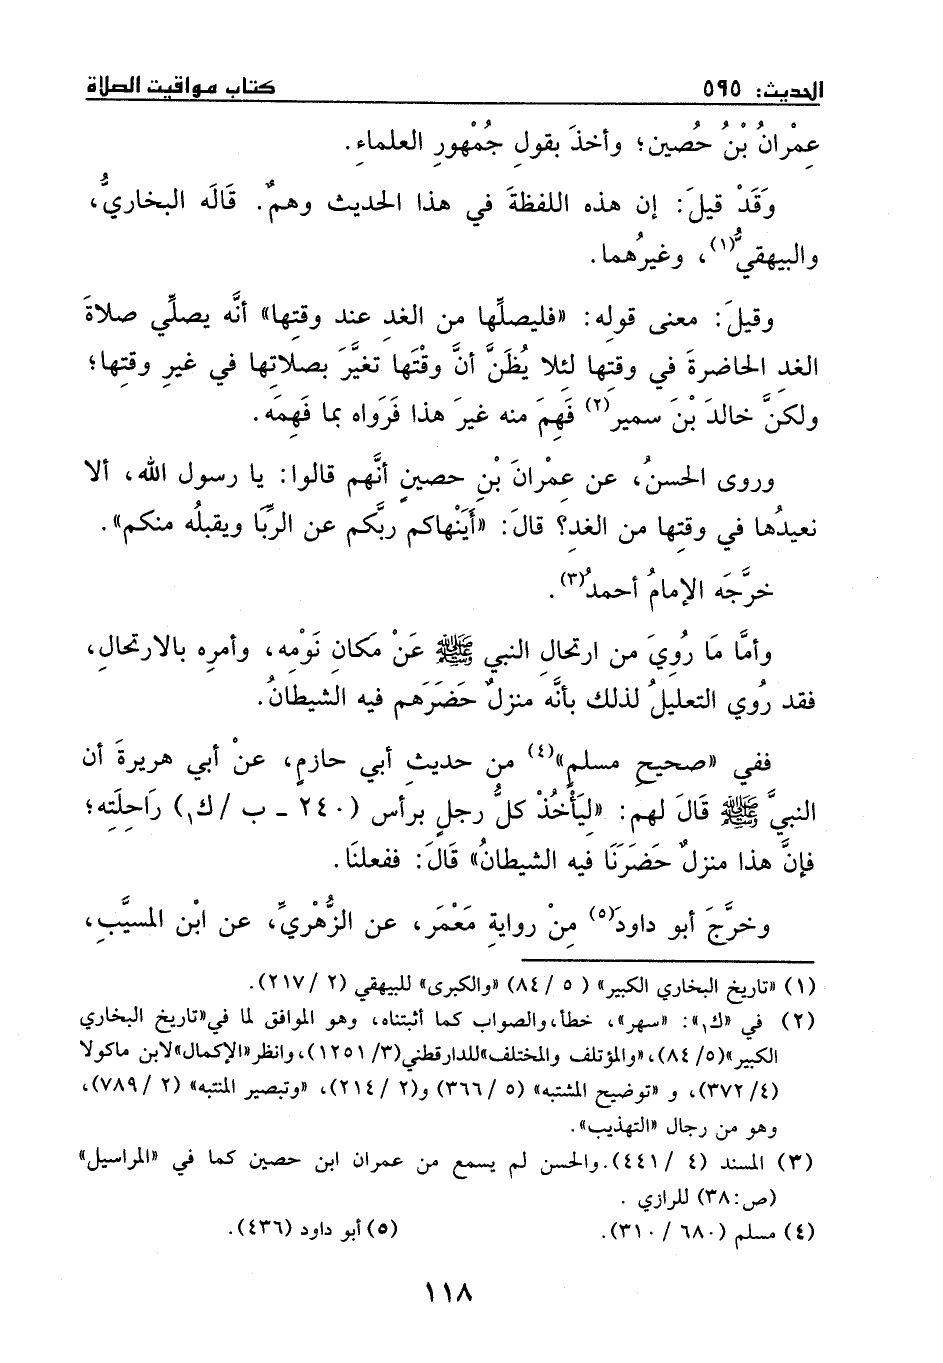 الحديث: ٥٩٥
كتاب مواقيت الصلاة
عِمْرانُ بْنُ حُصين؛ وأخذَ بقولِ جُمْهورِ العلماءِ.
وَقَدْ قيلَ: إن هذه اللفظةَ في هذا الحديث وهمٌ. قَالَه البخاريُّ،
والبيهقيُّ(١)، وغيرُهما.
وقيلَ: معنى قولِه: «فليصلِّها من الغدِ عند وقتِها» أنَّه يصلِّي صلاةَ
الغدِ الحاضرةَ في وقتِها لئلا يُظَنَّ أنَّ وقْتَها تغيَّرَ بصلاتِها في غيرِ وقتِها؛
ولكنَّ خالدَ بْنَ سمير(٢) فَهِمَ منه غيرَ هذا فَرَواه بما فَهِمَه.
وروى الحسنُ، عن عِمْرانَ بْنِ حصينٍ أنَّهم قالوا: يا رسول الله، ألا
نعيدُها في وقتِها من الغدِ؟ قالَ: «أَيَنْهاكم ربَّكم عن الرِّبَا ويقبلُه منكم».
خرَّجَه الإمامُ أحمدُ(٣).
وأمَّا مَا رُوِيَ من ارتحالِ النبي ﷺ عَنْ مَكانِ نَوْمِه، وأمرِه بالارتحالِ،
فقد رُوي التعليلُ لذلك بأنَّه منزلٌ حَضَرَهم فيه الشيطانُ.
ففي «صحيحِ مسلمٍ»(٤) من حديثِ أبي حازمٍ، عنْ أبي هريرةَ أن
النبيَّ ﷺ قَالَ لهم: «لِيَأْخُذْ كلُّ رجلٍ برأس (٢٤٠ ـ ب / ك١) رَاحِلَتِه؛
فإنَّ هذا منزلٌ حَضَرَنَا فيه الشيطانُ» قَالَ: ففعلنَا.
وخرَّجَ أبو داودَ(٥) مِنْ روايةِ مَعْمَر، عن الزُّهْريِّ، عن ابْن المسيَّبِ،
(١) «تاريخ البخاري الكبير» (٥ / ٨٤) «والكبرى» للبيهقي (٢ / ٢١٧).
(٢) في «ك١»: «سهر»، خطأ،والصواب كما أثبتناه، وهو الموافق لما في«تاريخ البخاري
الكبير»(٥/ ٨٤)،«والمؤتلف والمختلف»للدارقطني(٣/ ١٢٥١)،وانظر«الإكمال»لابن ماكولا
(٤/ ٣٧٢)، و «توضيح المشتبه» (٥ / ٣٦٦) و(٢ / ٢١٤)، «وتبصير المنتبه» (٢ / ٧٨٩)،
وهو من رجال «التهذيب».
(٣) المسند (٤ / ٤٤١).والحسن لم يسمع من عمران ابن حصين كما في «المراسيل»
(ص:٣٨) للرازي .
(٤) مسلم (٦٨٠ / ٣١٠).
(٥) أبو داود (٤٣٦).
١١٨